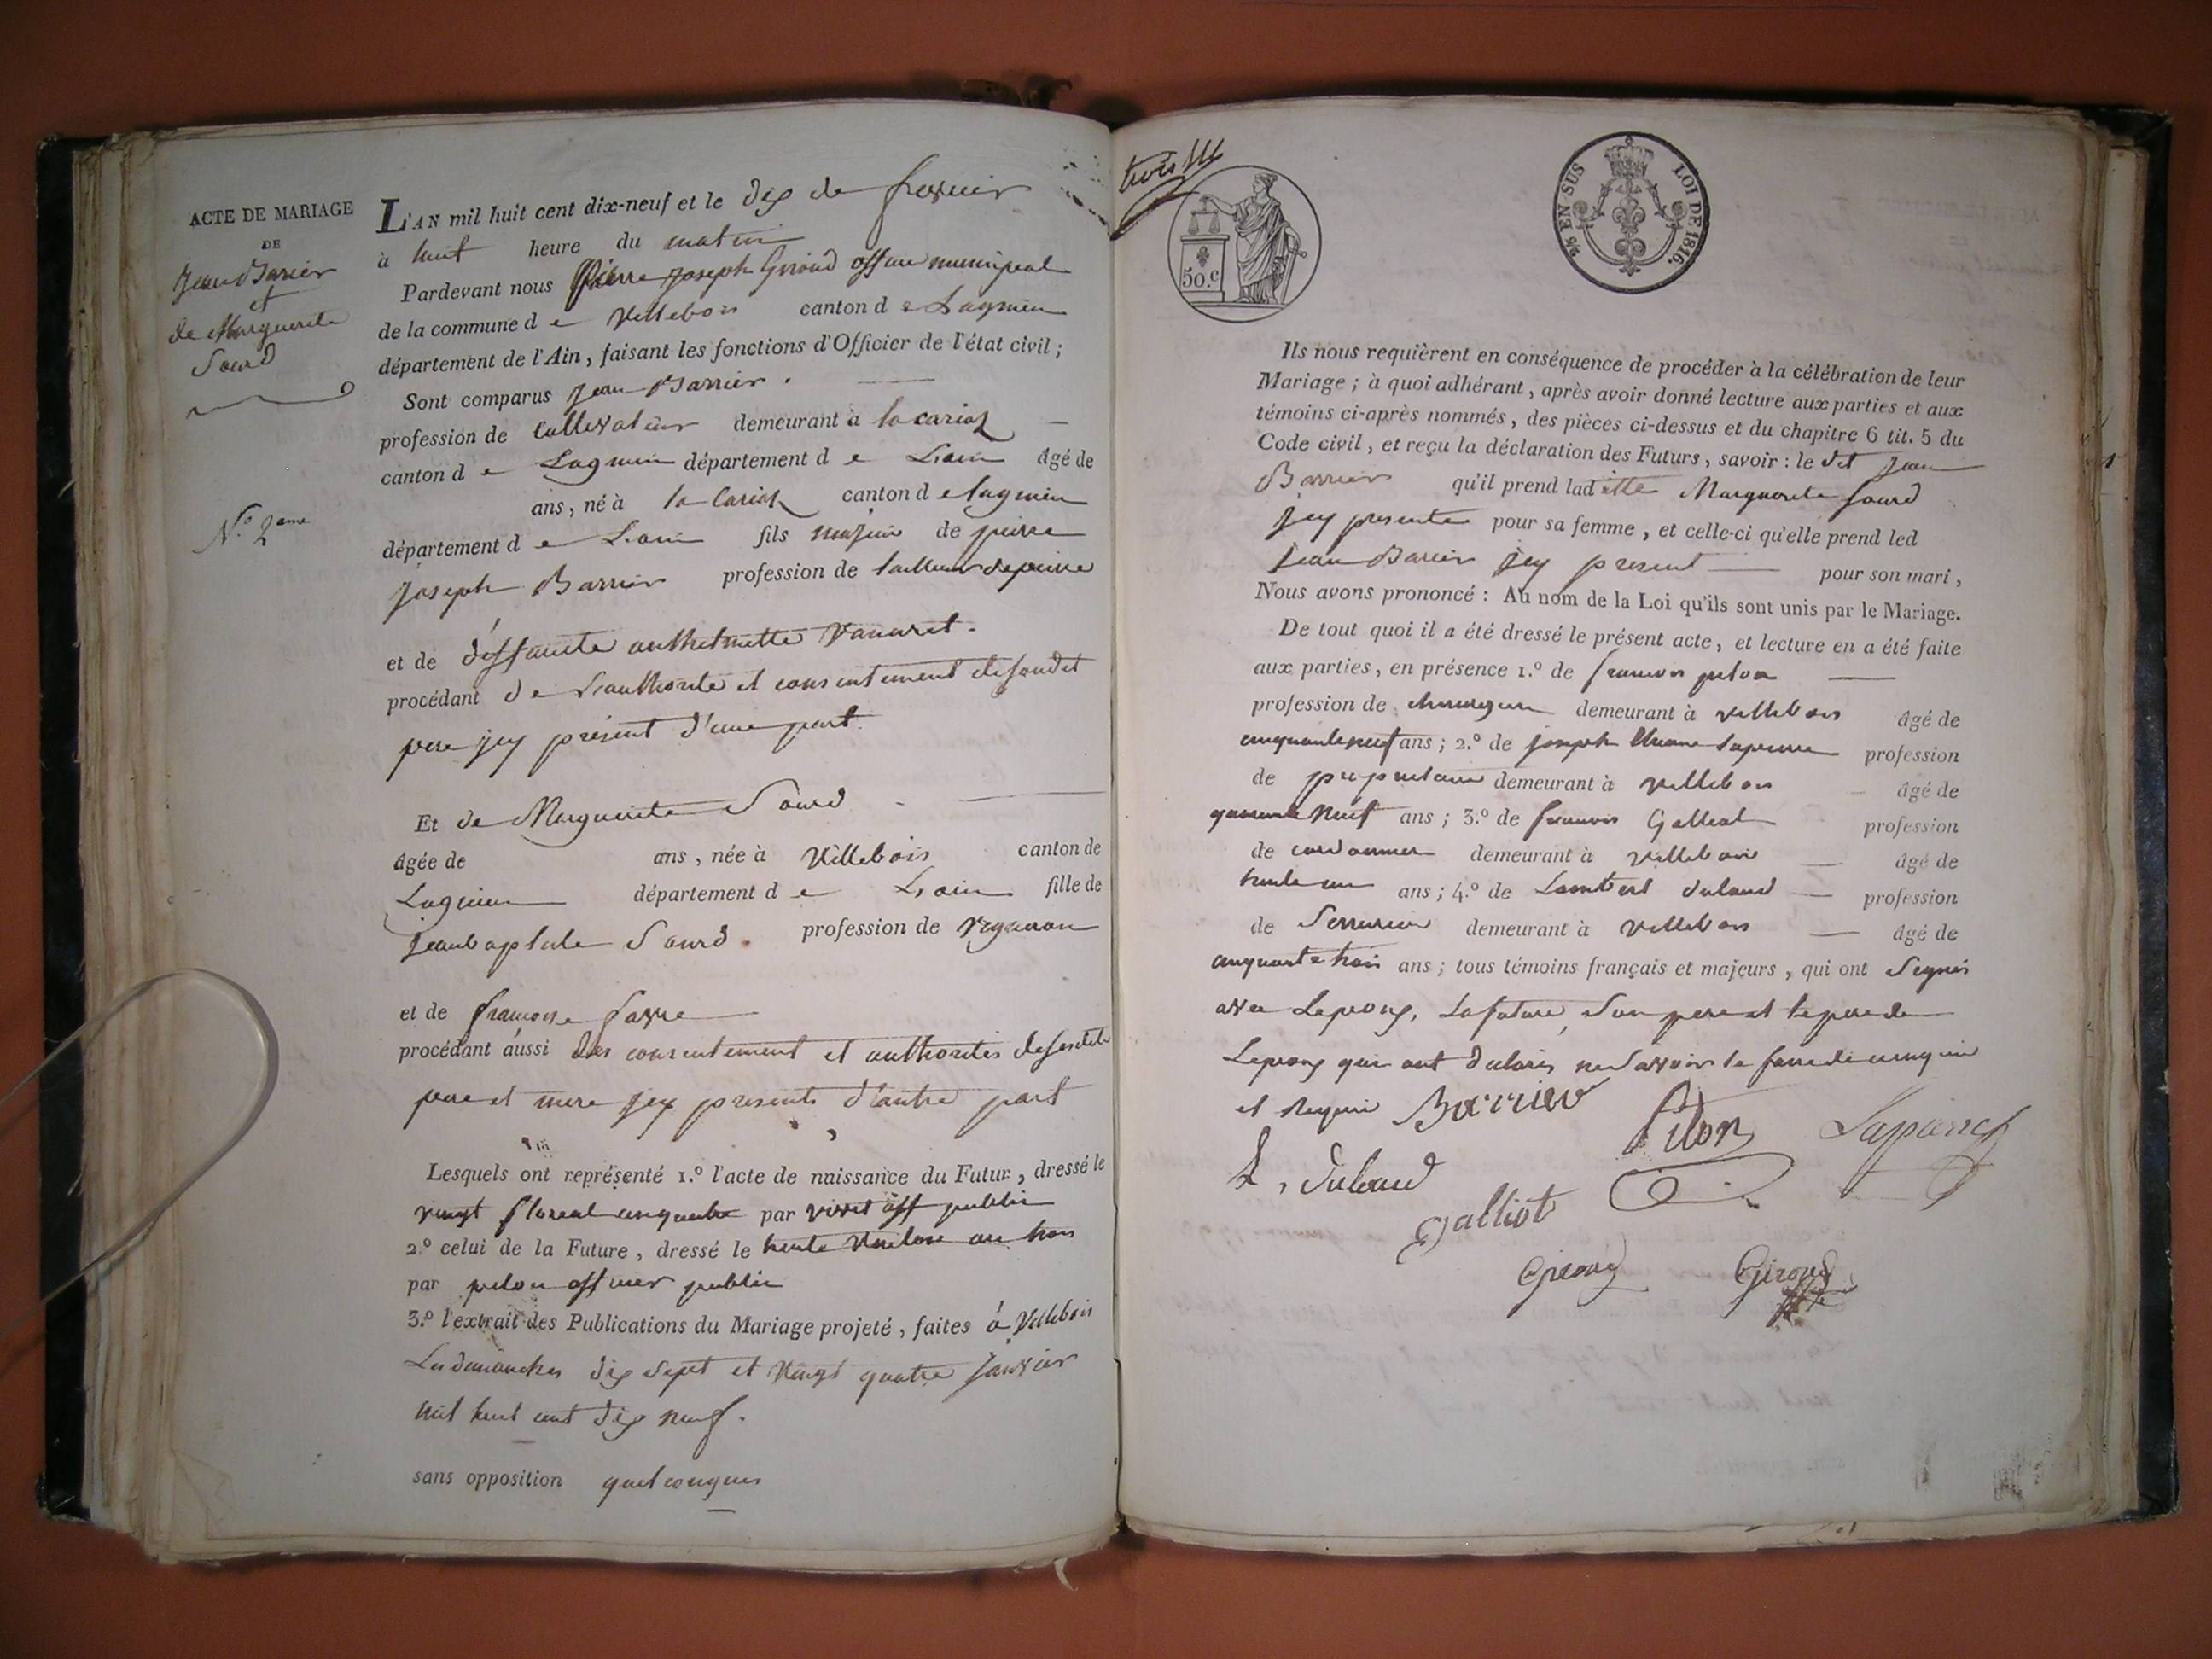 ACTE DE MARIAGE
DE
Jean Barrier
et
de Marguerite
Sourd
N.o 2eme
L'AN mil huit cent dix-neuf et le dix de fevrier
à huit heure du matin
Pardevant nous Pierre Joseph Giroud municipal
de la commune d e Villebois canton d e Lagnieu
département de l'Ain, faisant les fonctions d'Officier de l'état civil ;
Sont comparus Jean Barrier .
profession de cultivateur demeurant à
canton d e Lagnieu département d e L'ain âgé de
ans, né à canton d e lagnieu
département d e L'ain fils majeur de pierre
Joseph Barrier profession de tailleur de pierre
et de deffunte anthelmette Vanaret .
procédant de L'authorite et consentement de sondit
pere jcy présent d'une part
Et de Marguerite Sourd
âgée de ans, née à Villebois canton de
Lagnieu département d e L'ain fille de
Jean baptiste Sourd . profession de vigneron
et de francoise favre
procédant aussi des consentement et authorites de sesdits
pere et mere jcy presents d'autre part
Lesquels ont représenté 1.o l'acte de naissance du Futur, dressé le
vingt floreal par off public
2.o celui de la Future, dressé le trente Ventose an trois
par pilon officier public
3.o l'extrait des Publications du Mariage projeté, faites à Villebois
Les dimanches dix sept et vingt quatre Janvier
mil huit cent dix neuf .
sans opposition quelconques
trois
50.c
25 EN SUS
LOI DE 1816.
Ils nous requièrent en conséquence de procéder à la célébration de leur
Mariage ; à quoi adhérant, après avoir donné lecture aux parties et aux
témoins ci-après nommés, des pièces ci-dessus et du chapitre 6 tit. 5 du
Code civil, et reçu la déclaration des Futurs, savoir : le dit Jean
Barrier qu'il prend laditte Marguerite Sourd
jcy presente pour sa femme, et celle-ci qu'elle prend led
Jean Barrier jcy present pour son mari,
Nous avons prononcé : Au nom de la Loi qu'ils sont unis par le Mariage.
De tout quoi il a été dressé le présent acte, et lecture en a été faite
aux parties, en présence 1.o de francois pilon
profession de chirurgien demeurant à villebois âgé de
cinquante neuf ans ; 2.o de joseph Lapierre profession
de proprietaire demeurant à villebois âgé de
quarante neuf ans ; 3.o de francois Galliot profession
de cordonnier demeurant à villebois âgé de
trente un ans ; 4.o de Lambert dubaud profession
de Serrurier demeurant à villebois âgé de
cinquante trois ans ; tous témoins français et majeurs, qui ont Signés
avec Lepoux, La future, Son pere et le pere de
Lepoux qui ont declarés ne Savoir le faire de ce enquis
et requis Barrier
Pilon Lapierre
L, dubaud
Galliot
Giroud Giroud